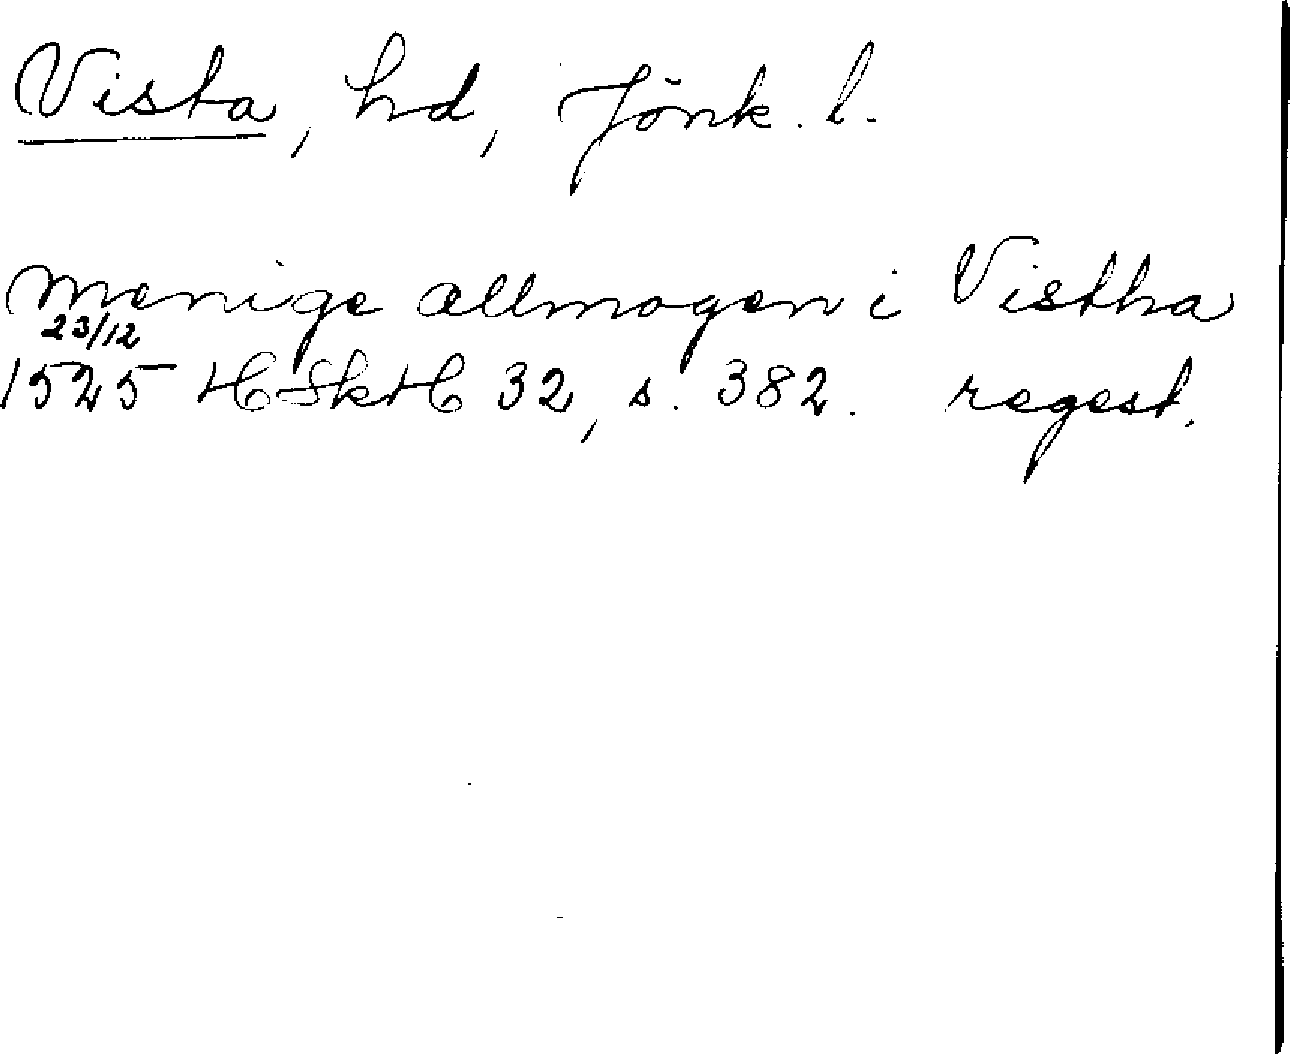 Vista, hd, Jönk. l.
menige allmogen i Vistha
23/12
1525 HSkH 32, s. 382. regest.